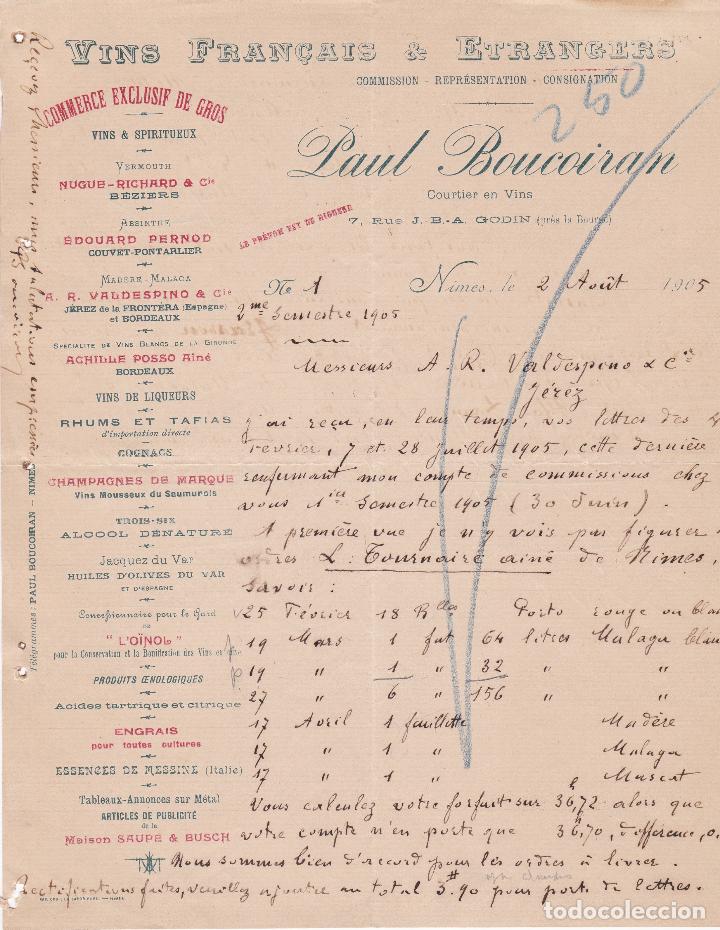 VINS FRANÇAIS & ETRANGERS
COMMISSION - REPRÉSENTATION - CONSIGNATION
260
Paul Boucoiran
Courtier en Vins
7, RUE J. B.-A. GODIN (près la Bourse)
LE PRÉNOM EST DE RIGUEUR
COMMERCE EXCLUSIF DE GROS
VINS & SPIRITUEUX
VERMOUTH
NUGUE-RICHARD & Cie
BÉZIERS
ABSINTHE
ÉDOUARD PERNOD
COUVET-PONTARLIER
MADÈRE-MALAGA
A. R. VALDESPINO & Cie
JÉREZ de la FRONTÉRA (Espagne)
et BORDEAUX
SPÉCIALITÉ DE VINS BLANCS DE LA GIRONDE
ACHILLE POSSO Aîné
BORDEAUX
VINS DE LIQUEURS
RHUMS ET TAFIAS
d'importation directe
COGNACS
CHAMPAGNES DE MARQUE
Vins Mousseux du Saumurois
TROIS-SIX
ALCOOL DÉNATURÉ
Jacquez du Var
HUILES D'OLIVES DU VAR
ET D'ESPAGNE
Concessionnaire pour le Gard
DE
"L'OÏNOL"
pour la Conservation et la Bonification des Vins en
PRODUITS ŒNOLOGIQUES
Acides tartrique et citrique
ENGRAIS
pour toutes cultures
ESSENCES DE MESSINE (Italie)
Tableaux-Annonces sur Métal
ARTICLES DE PUBLICITÉ
de la
Maison SAUPE & BUSCH
Télégrammes: PAUL BOUCOIRAN - NIMES
Recevez Messieurs, mes salutations empressées
No 1 Nîmes, le 2 Août 1905
2me Semestre 1905
Messieurs A. R. Valdespino & Cie
Jéréz
J'ai reçu, en leur temps, vos lettres des
Février, 7 et 28 Juillet 1905, cette dernière
renfermant mon compte de commissions chez
vous 1ier Semestre 1905 (30 Juin).
A première vue je n'y vois pas figurer
ordres L. Tournaire ainé de Nimes,
savoir:
25 Février 18 Blles Porto rouge ou blanc
19 Mars 1 fut 64 litres Malaga blanc
19 " 1 " 32 " "
27 " 6 " 156 " "
17 Avril 1 feuillette Madère
17 " 1 " Malaga
17 " 1 " Muscat
Vous calculez votre forfait sur 36h,72 alors que
votre compte n'en porte que 36h,70, différence, 0.
Nous sommes bien d'accord pour les ordres à livrer.
Rectifications faites, veuillez ajouter au total 3#.90 pour ports de lettres.
todocoleccion